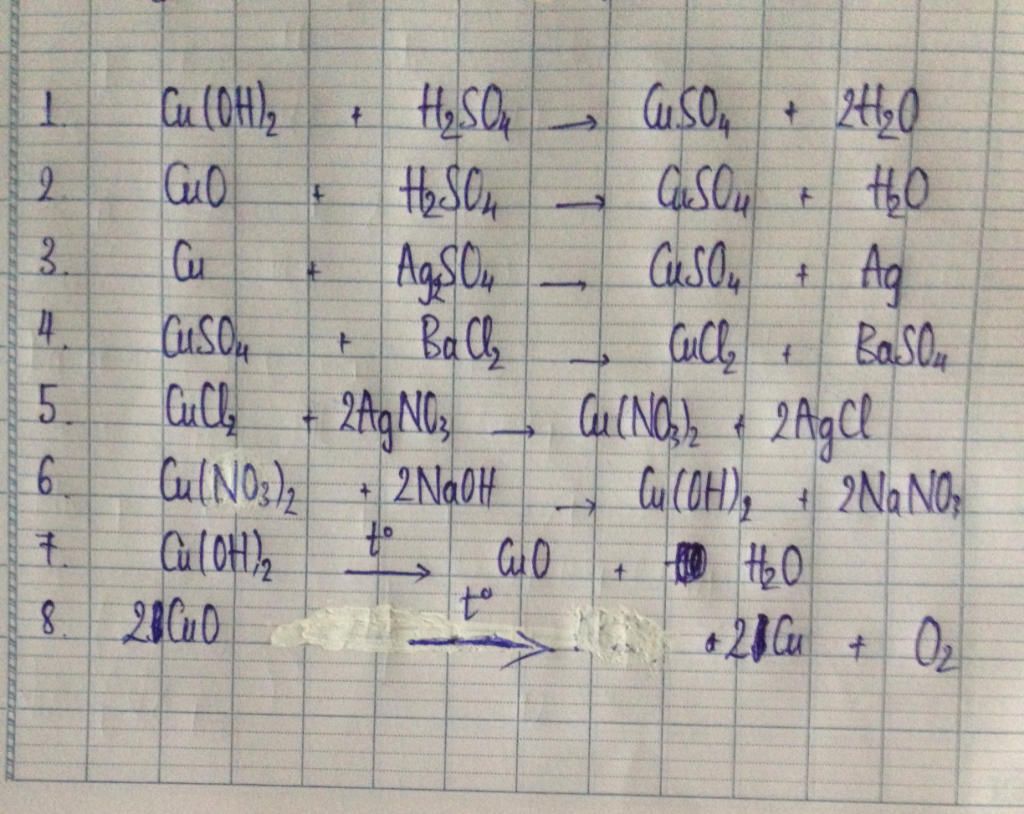 1. Cu(OH)₂ + H₂SO₄ → CuSO₄ + 2H₂O
2 CuO + H₂SO₄ → CuSO₄ + H₂O
3. Cu + Ag₂SO₄ → CuSO₄ + Ag
4. CuSO₄ + BaCl₂ → CuCl₂ + BaSO₄
5. CuCl₂ + 2AgNO₃ → Cu(NO₃)₂ + 2AgCl
6. Cu(NO₃)₂ + 2NaOH → Cu(OH)₂ + 2NaNO₃
7. Cu(OH)₂ t° → CuO + H₂O
8. 2CuO t° → + 2Cu + O₂